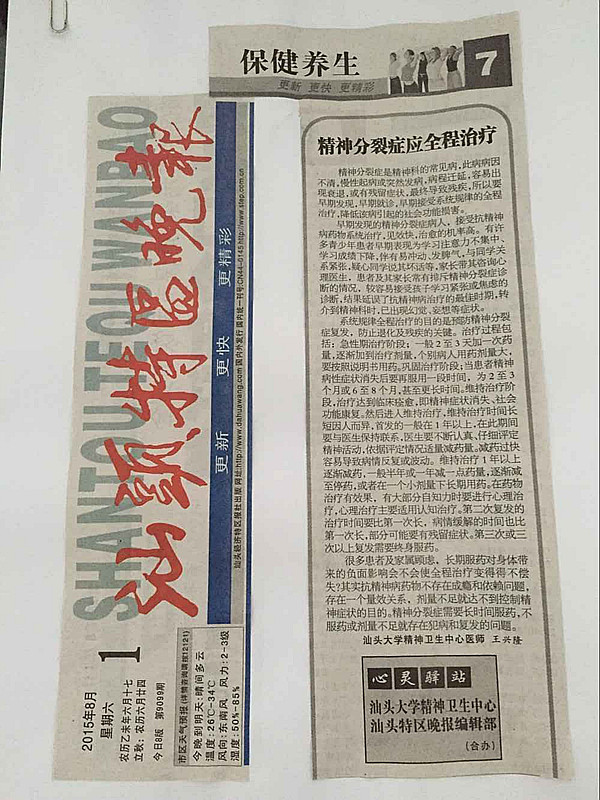 保健养生
更新 更快 更精彩
7
SHANTOU TEQU WANBAO
汕頭特區晚報
更新 更快 更精彩
汕头经济特区报社出版 网址:http://www.dahuawang.com 国内外发行 国内统一刊号:CN44-0145 http://www.step.com.cn
2015年8月
1
星期六
农历乙未年六月十七
立秋:农历六月廿四
今日8版 第9099期
市区天气预报(详情咨询请拨12121)
今晚到明天:晴间多云
温度:26℃-34℃
风向:东南风 风力:2-3级
湿度:50%-85%
精神分裂症应全程治疗
精神分裂症是精神科的常见病,此病病因
不清,慢性起病或突然发病,病程迁延,容易出
现衰退,或有残留症状,最终导致残疾,所以要
早期发现,早期就诊,早期接受系统规律的全程
治疗,降低该病引起的社会功能损害。
早期发现的精神分裂症病人,接受抗精神
病药物系统治疗,见效快,治愈的机率高。有许
多青少年患者早期表现为学习注意力不集中、
学习成绩下降,伴有易冲动、发脾气,与同学关
系紧张,疑心同学说其坏话等,家长带其咨询心
理医生,患者及其家长常有排斥精神分裂症诊
断的情况,较容易接受孩子学习紧张或焦虑的
诊断,结果延误了抗精神病治疗的最佳时期,转
介到精神科时,已出现幻觉、妄想等症状。
系统规律全程治疗的目的是预防精神分裂
症复发,防止退化及残疾的关键。治疗过程包
括:急性期治疗阶段:一般2至3天加一次药
量,逐渐加到治疗剂量,个别病人用药剂量大,
要按照说明书用药。巩固治疗阶段:当患者精神
病性症状消失后要再服用一段时间,为2至3
个月或6至8个月,甚至更长时间。维持治疗阶
段,治疗达到临床痊愈,即精神症状消失、社会
功能康复。然后进入维持治疗,维持治疗时间长
短因人而异,首发的一般在1年以上,在此期间
要与医生保持联系,医生要不断认真、仔细评定
精神活动,依据评定情况适量减药量。减药过快
容易导致病情反复或波动。维持治疗1年以上
逐渐减药,一般半年或一年减一点药量,逐渐减
至停药,或者在一个小剂量下长期用药。在药物
治疗有效果,有大部分自知力时要进行心理治
疗,心理治疗主要适用认知治疗。第二次复发的
治疗时间要比第一次长,病情缓解的时间也比
第一次长,部分可能要有残留症状。第三次或三
次以上复发需要终身服药。
很多患者及家属顾虑,长期服药对身体带
来的负面影响会不会使全程治疗变得得不偿
失?其实抗精神病药物不存在成瘾和依赖问题,
存在一个量效关系,剂量不足就达不到控制精
神症状的目的。精神分裂症需要长时间服药,不
服药或剂量不足就存在犯病和复发的问题。
汕头大学精神卫生中心医师 王兴隆
心灵驿站
汕头大学精神卫生中心
汕头特区晚报编辑部
(合办)